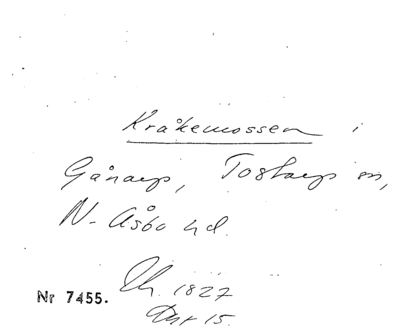 Kråkemossen i
Gånarp, Tostarp sn,
N. Åsbo hd.
Nr 7455.
1827
15.